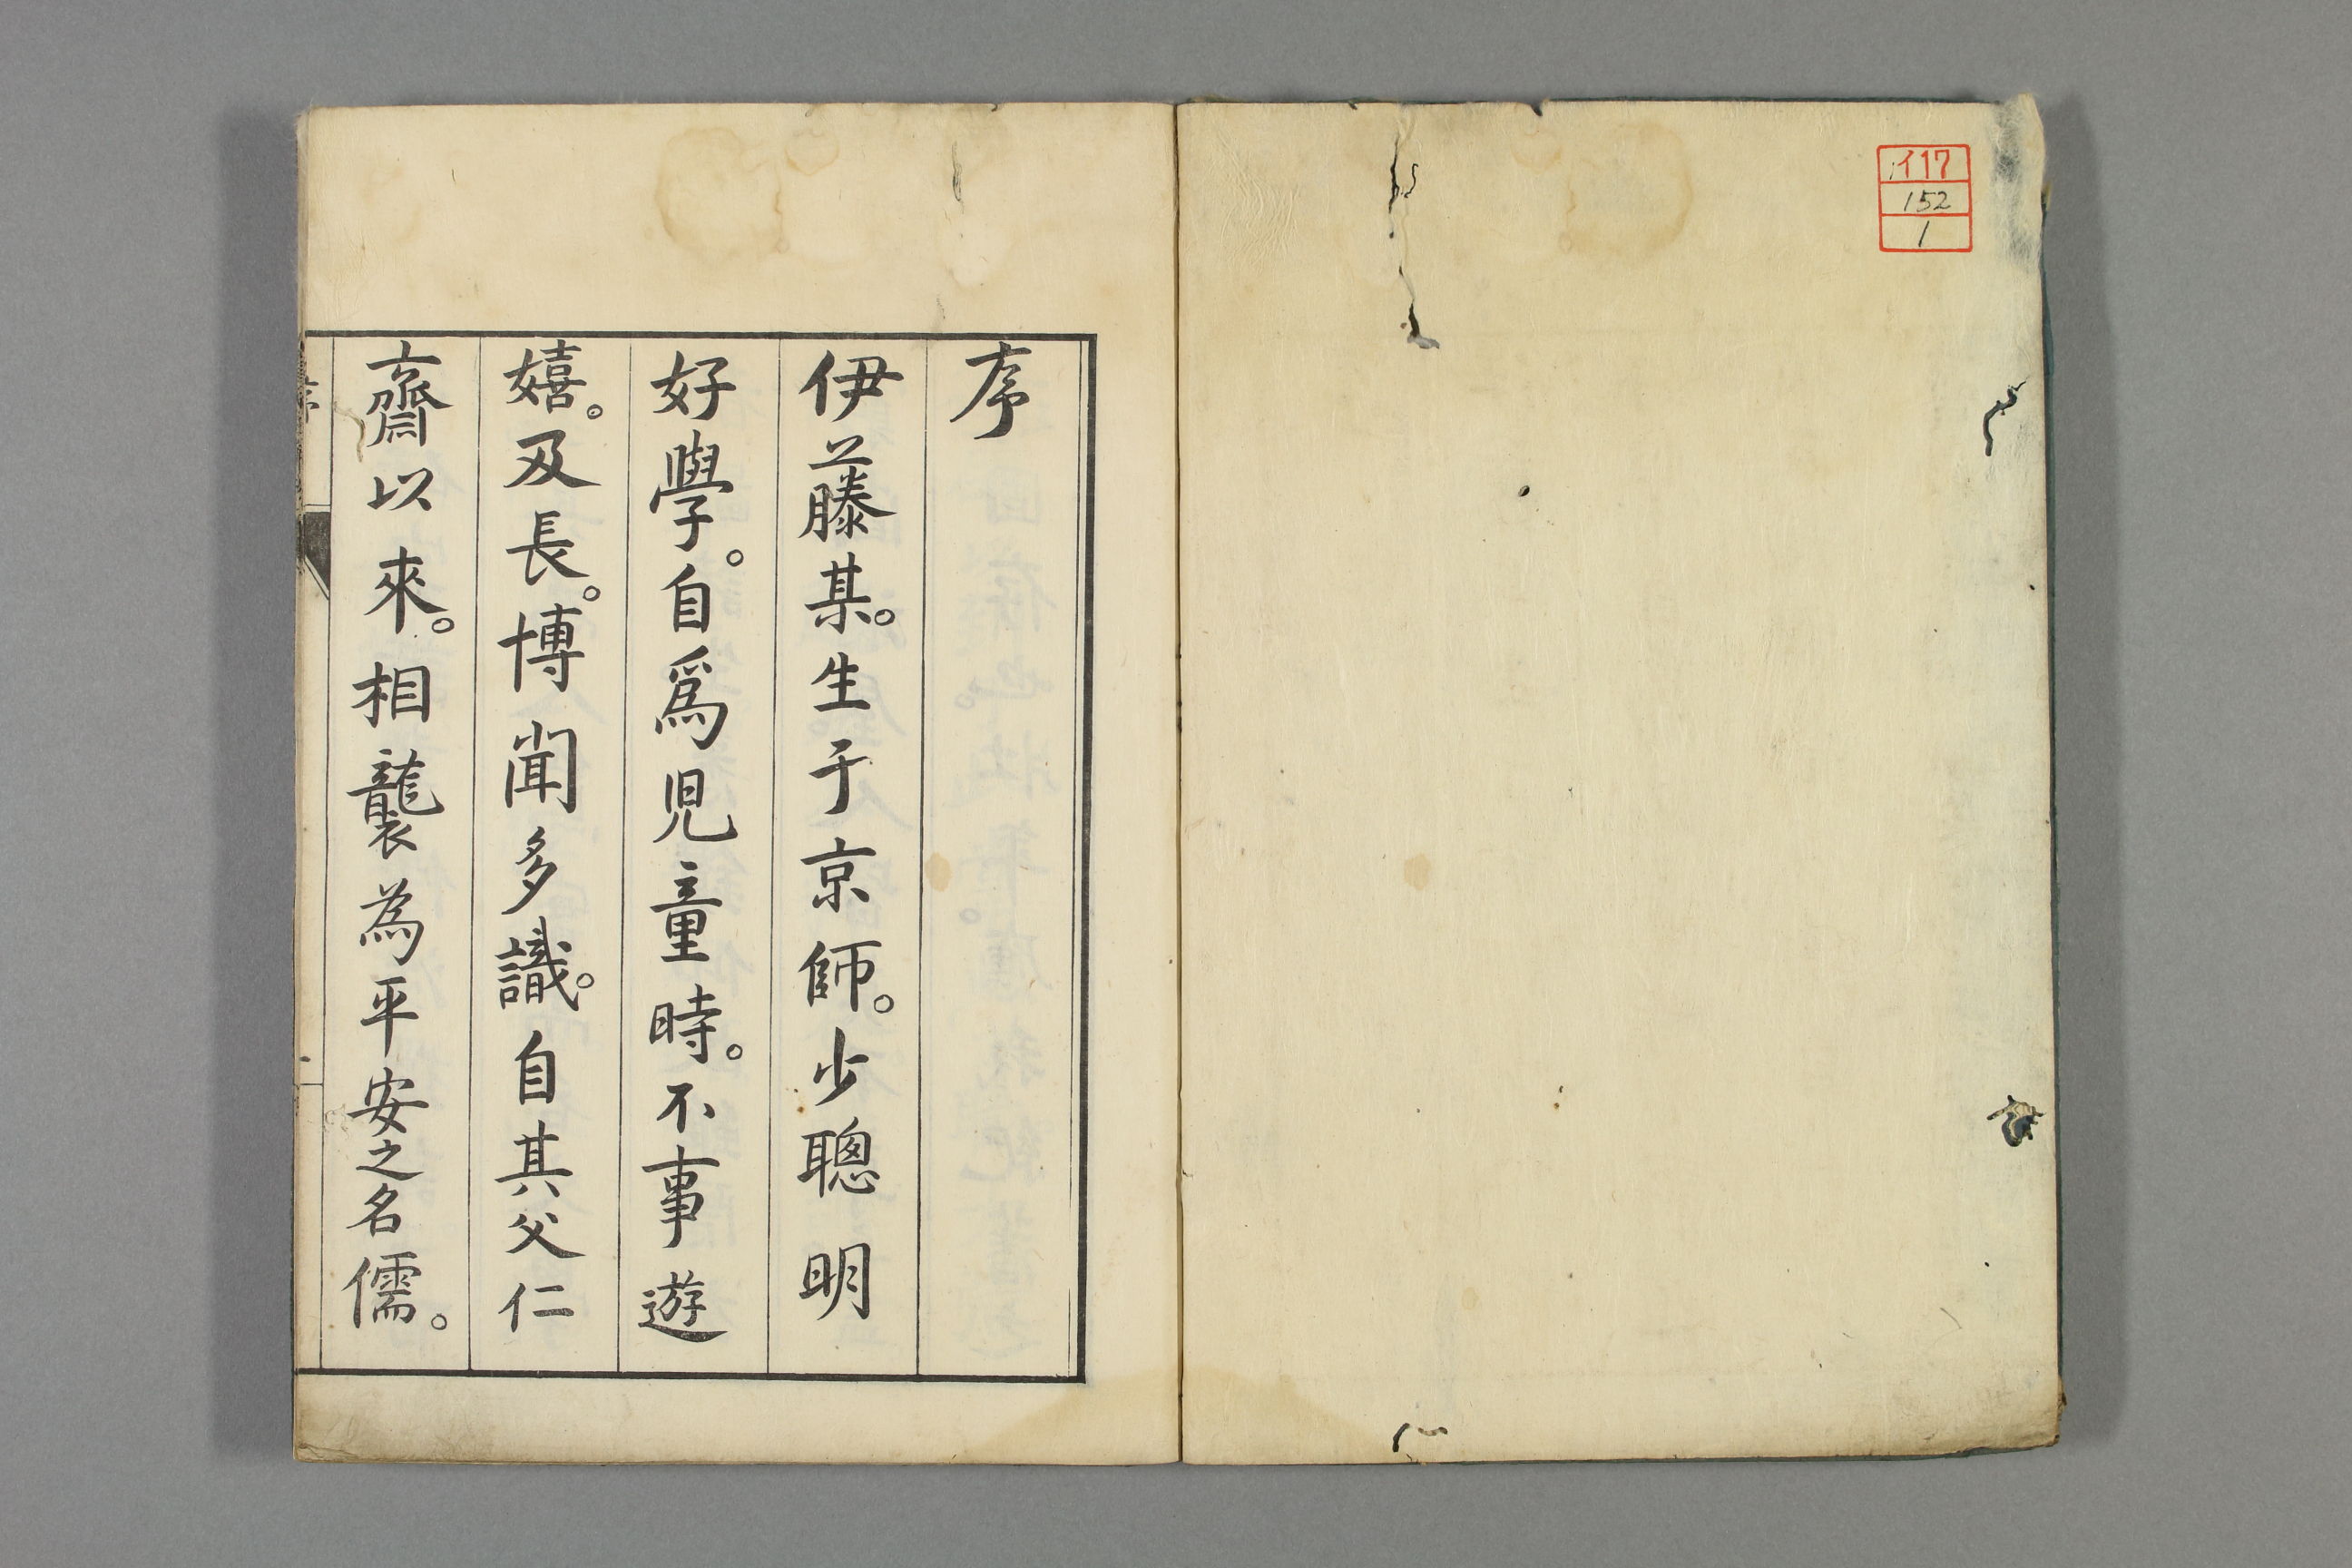 イ17
152
1
序
伊藤某。生于京師。少聰明
好學。自爲児童時。不事遊
嬉。及長。博聞多識。自其父仁
齋以來。相襲為平安之名儒。